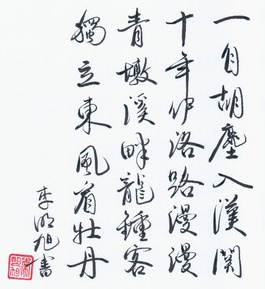 一自胡塵入漢関
十年伊洛路漫漫
青墩溪畔龍種客
獨立東風看牡丹
李明旭書